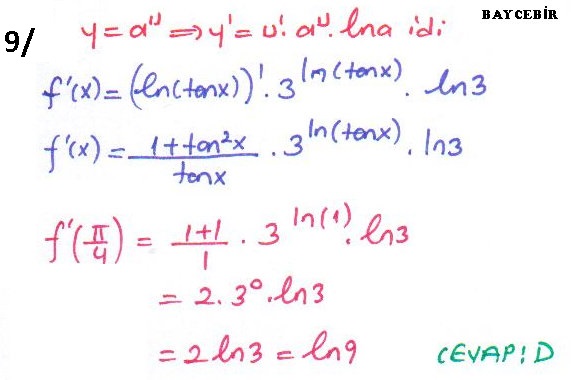 BAYCEBİR
9/ y = a^u ⇒ y' = u'. a^u. lna idi
f'(x) = (ln(tanx))'. 3^ln(tanx) . ln3
f'(x) = (1+tan²x)/tanx . 3^ln(tanx) . ln3
f'(π/4) = (1+1)/1 . 3^ln(1). ln3
= 2. 3⁰. ln3
= 2 ln3 = ln9 CEVAP: D